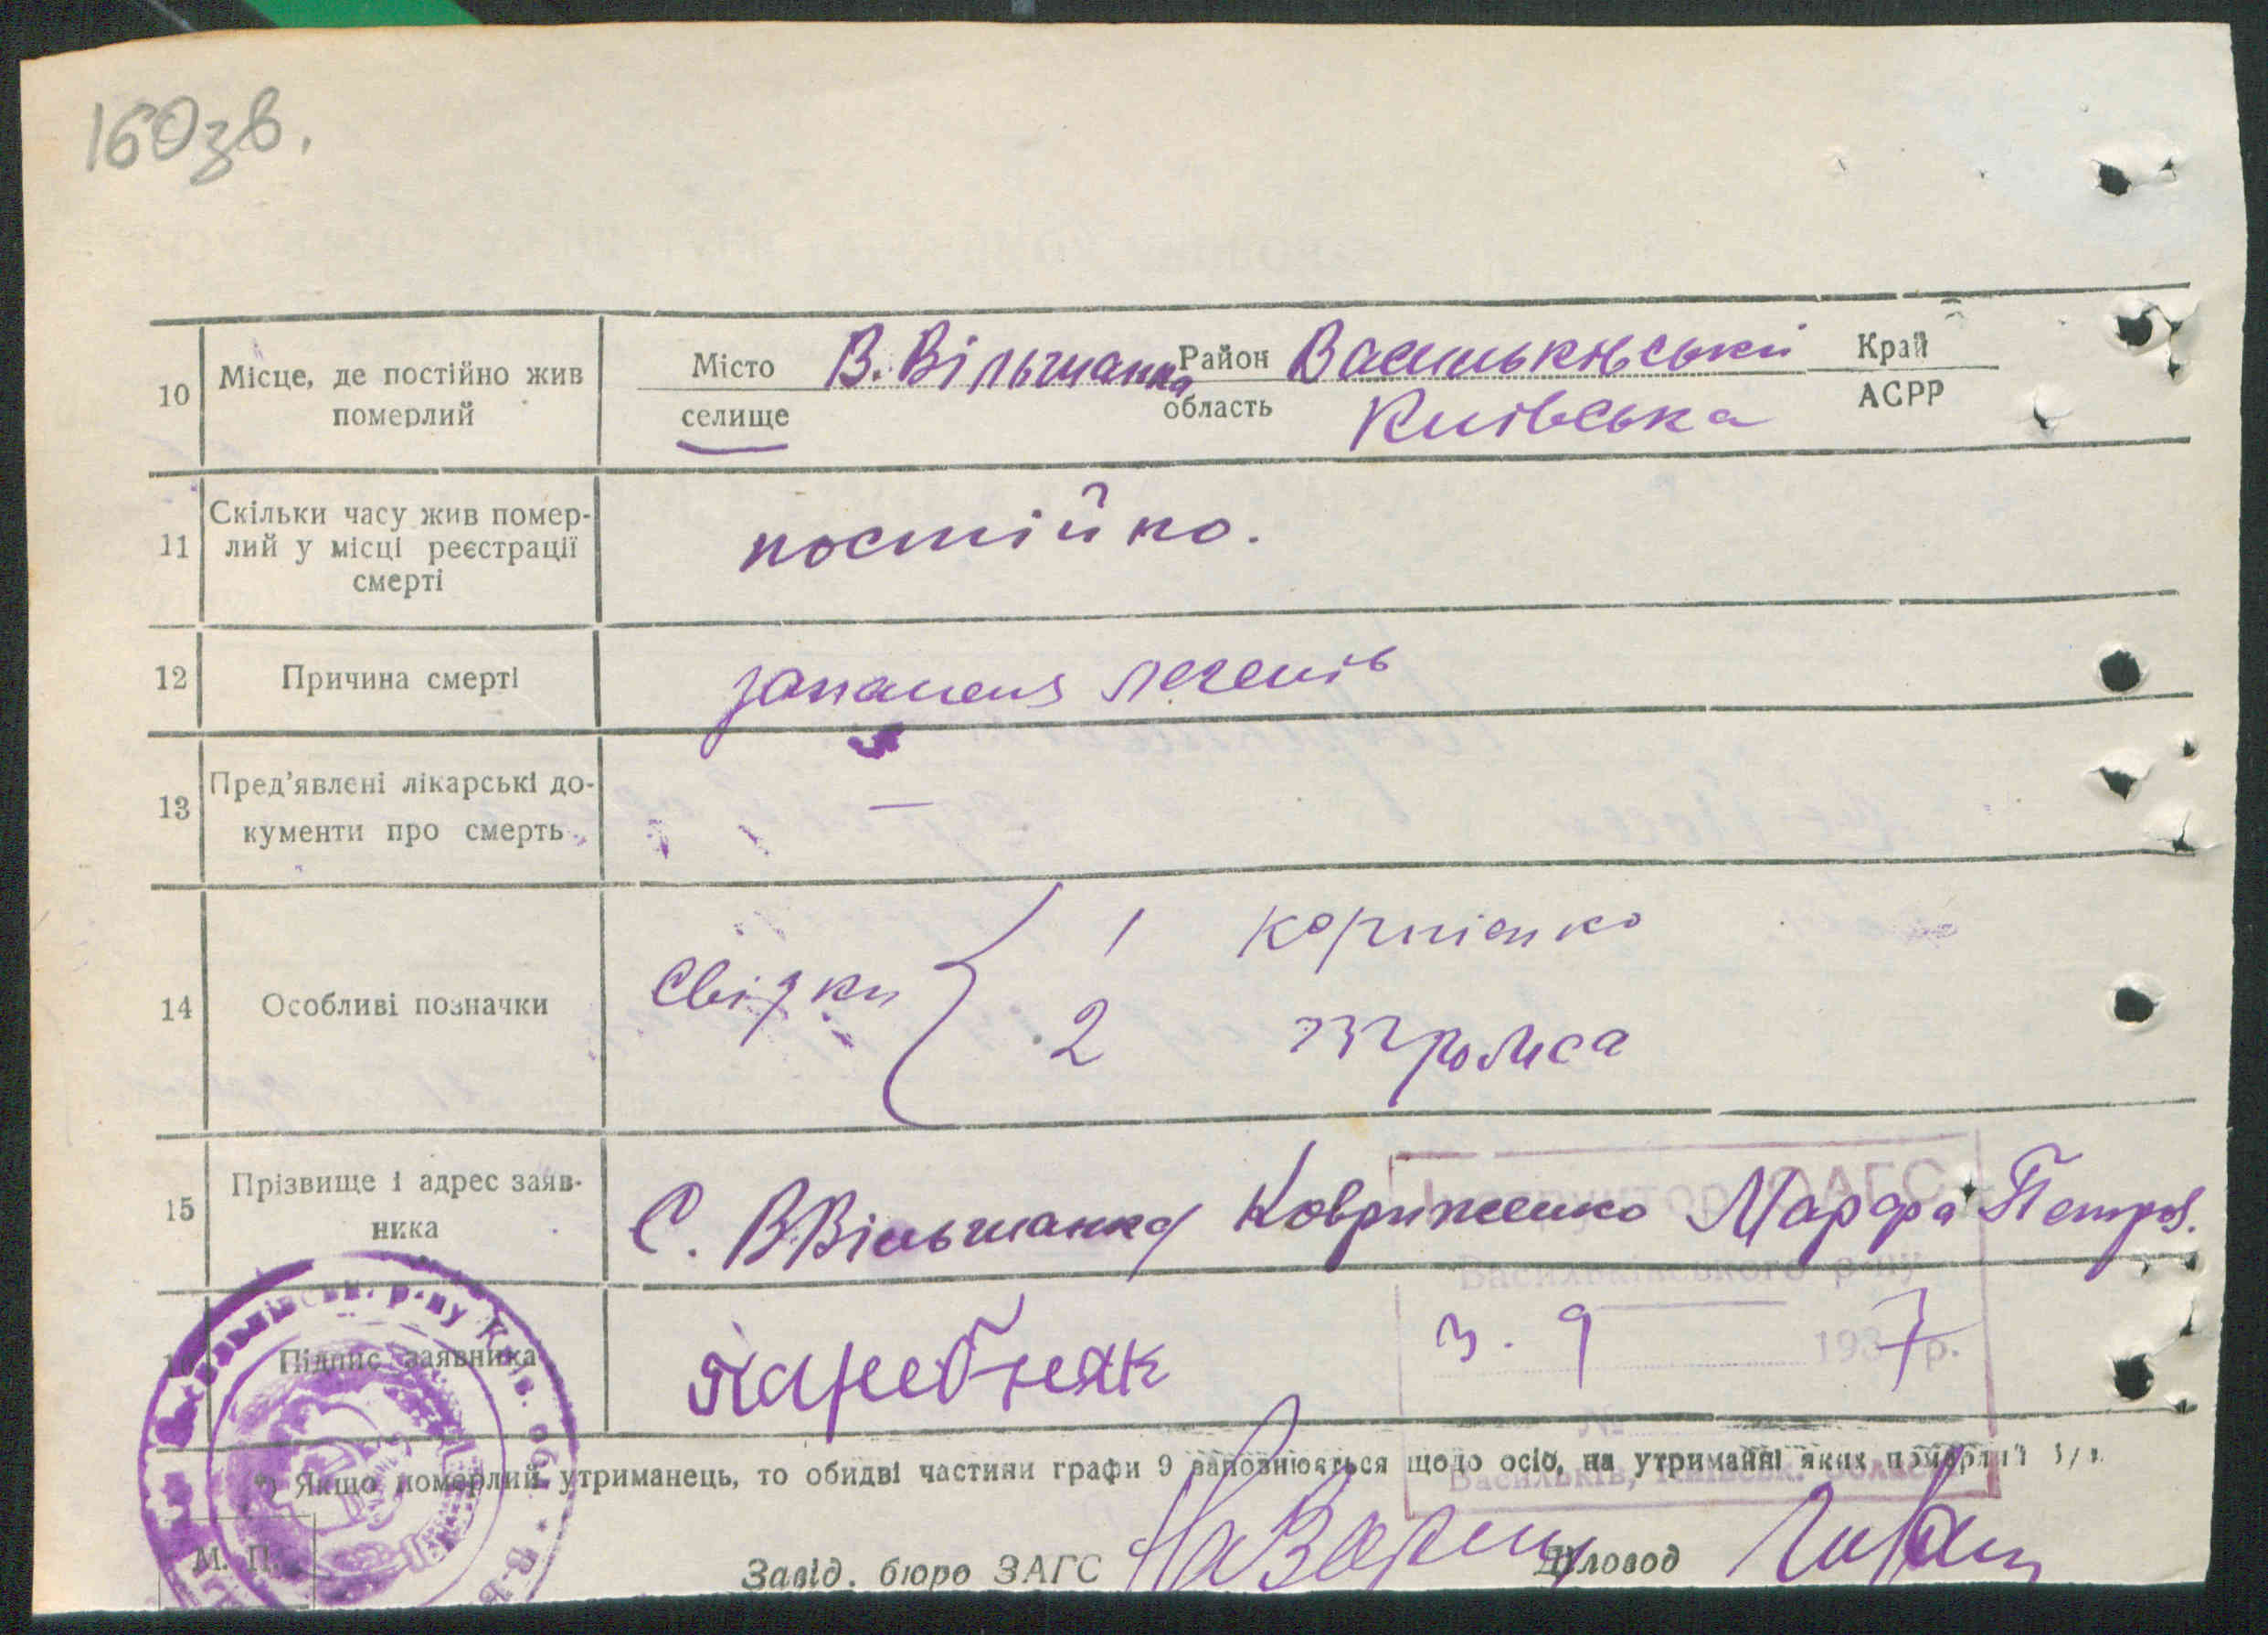 160зв.
10 Місце, де постійно жив померлий
Місто селище В. Вільшанка Район область Васильківський Київська Край АСРР
11 Скільки часу жив помер-
лий у місці реєстрації
смерті
постійно.
12 Причина смерті запаленя легенів
13 Пред'явлені лікарські до-
кументи про смерть —
14 Особливі позначки
Свідки 1 Корнієнко
2
15 Прізвище і адрес заяв-
ника
С. В Вільшанка Ковриженко Марфа Петров.
16 Підпис заявника
Інструктор ЗАГС
Васильківського р-ну
3. 9 1937 р.
№
Васильків, Київськ. області
*) Якщо померлий утриманець, то обидві частини графи 9 заповнюється щодо осіб, на утриманні яких померлий
М. П.
Завід. бюро ЗАГС
Діловод